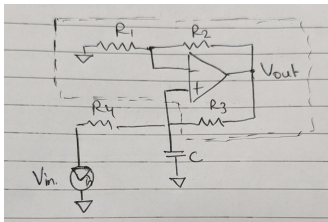 R1 R2
− Vout
+
R4 R3
C
Vin.